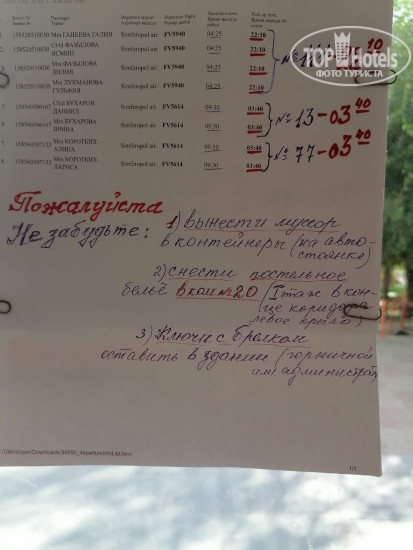 TOP Hotels
ФОТО ТУРИСТА
1585205110030 Mrs ГАНЕЕВА ГАЛИЯ Simferopol air. FV5940 04:25 22:10
Chd ФАЗЫЛОВА ЯСМИН Simferopol air. FV5940 04:25 22:10
Mrs ФАЗЫЛОВА ЛИЛИЯ Simferopol air. FV5940 04:25 22:10
Mrs ЛУКМАНОВА ГУЛЬФИЯ Simferopol air. FV5940 04:25 22:10
Chd БУХАРОВ ДАНИИЛ Simferopol air. FV5614 09:30 03:40
Mrs БУХАРОВА ИРИНА Simferopol air. FV5614 09:30 03:40
№ 13 - 03 40
Mrs КОРОТКИХ АЛИНА Simferopol air. FV5614 09:30 03:40
Mrs КОРОТКИХ ЛАРИСА Simferopol air. FV5614 09:30 03:40
№ 77 - 03 40
Пожалуйста
Не забудьте: 1) вынести мусор
в контейнеры (на авто-
стоянке)
2) снести постельное
бельё в ком №20 (1 этаж в кон-
це коридора
левое крыло)
3) Ключи с брелком
оставить в здании (горничной
или администрат
1/1